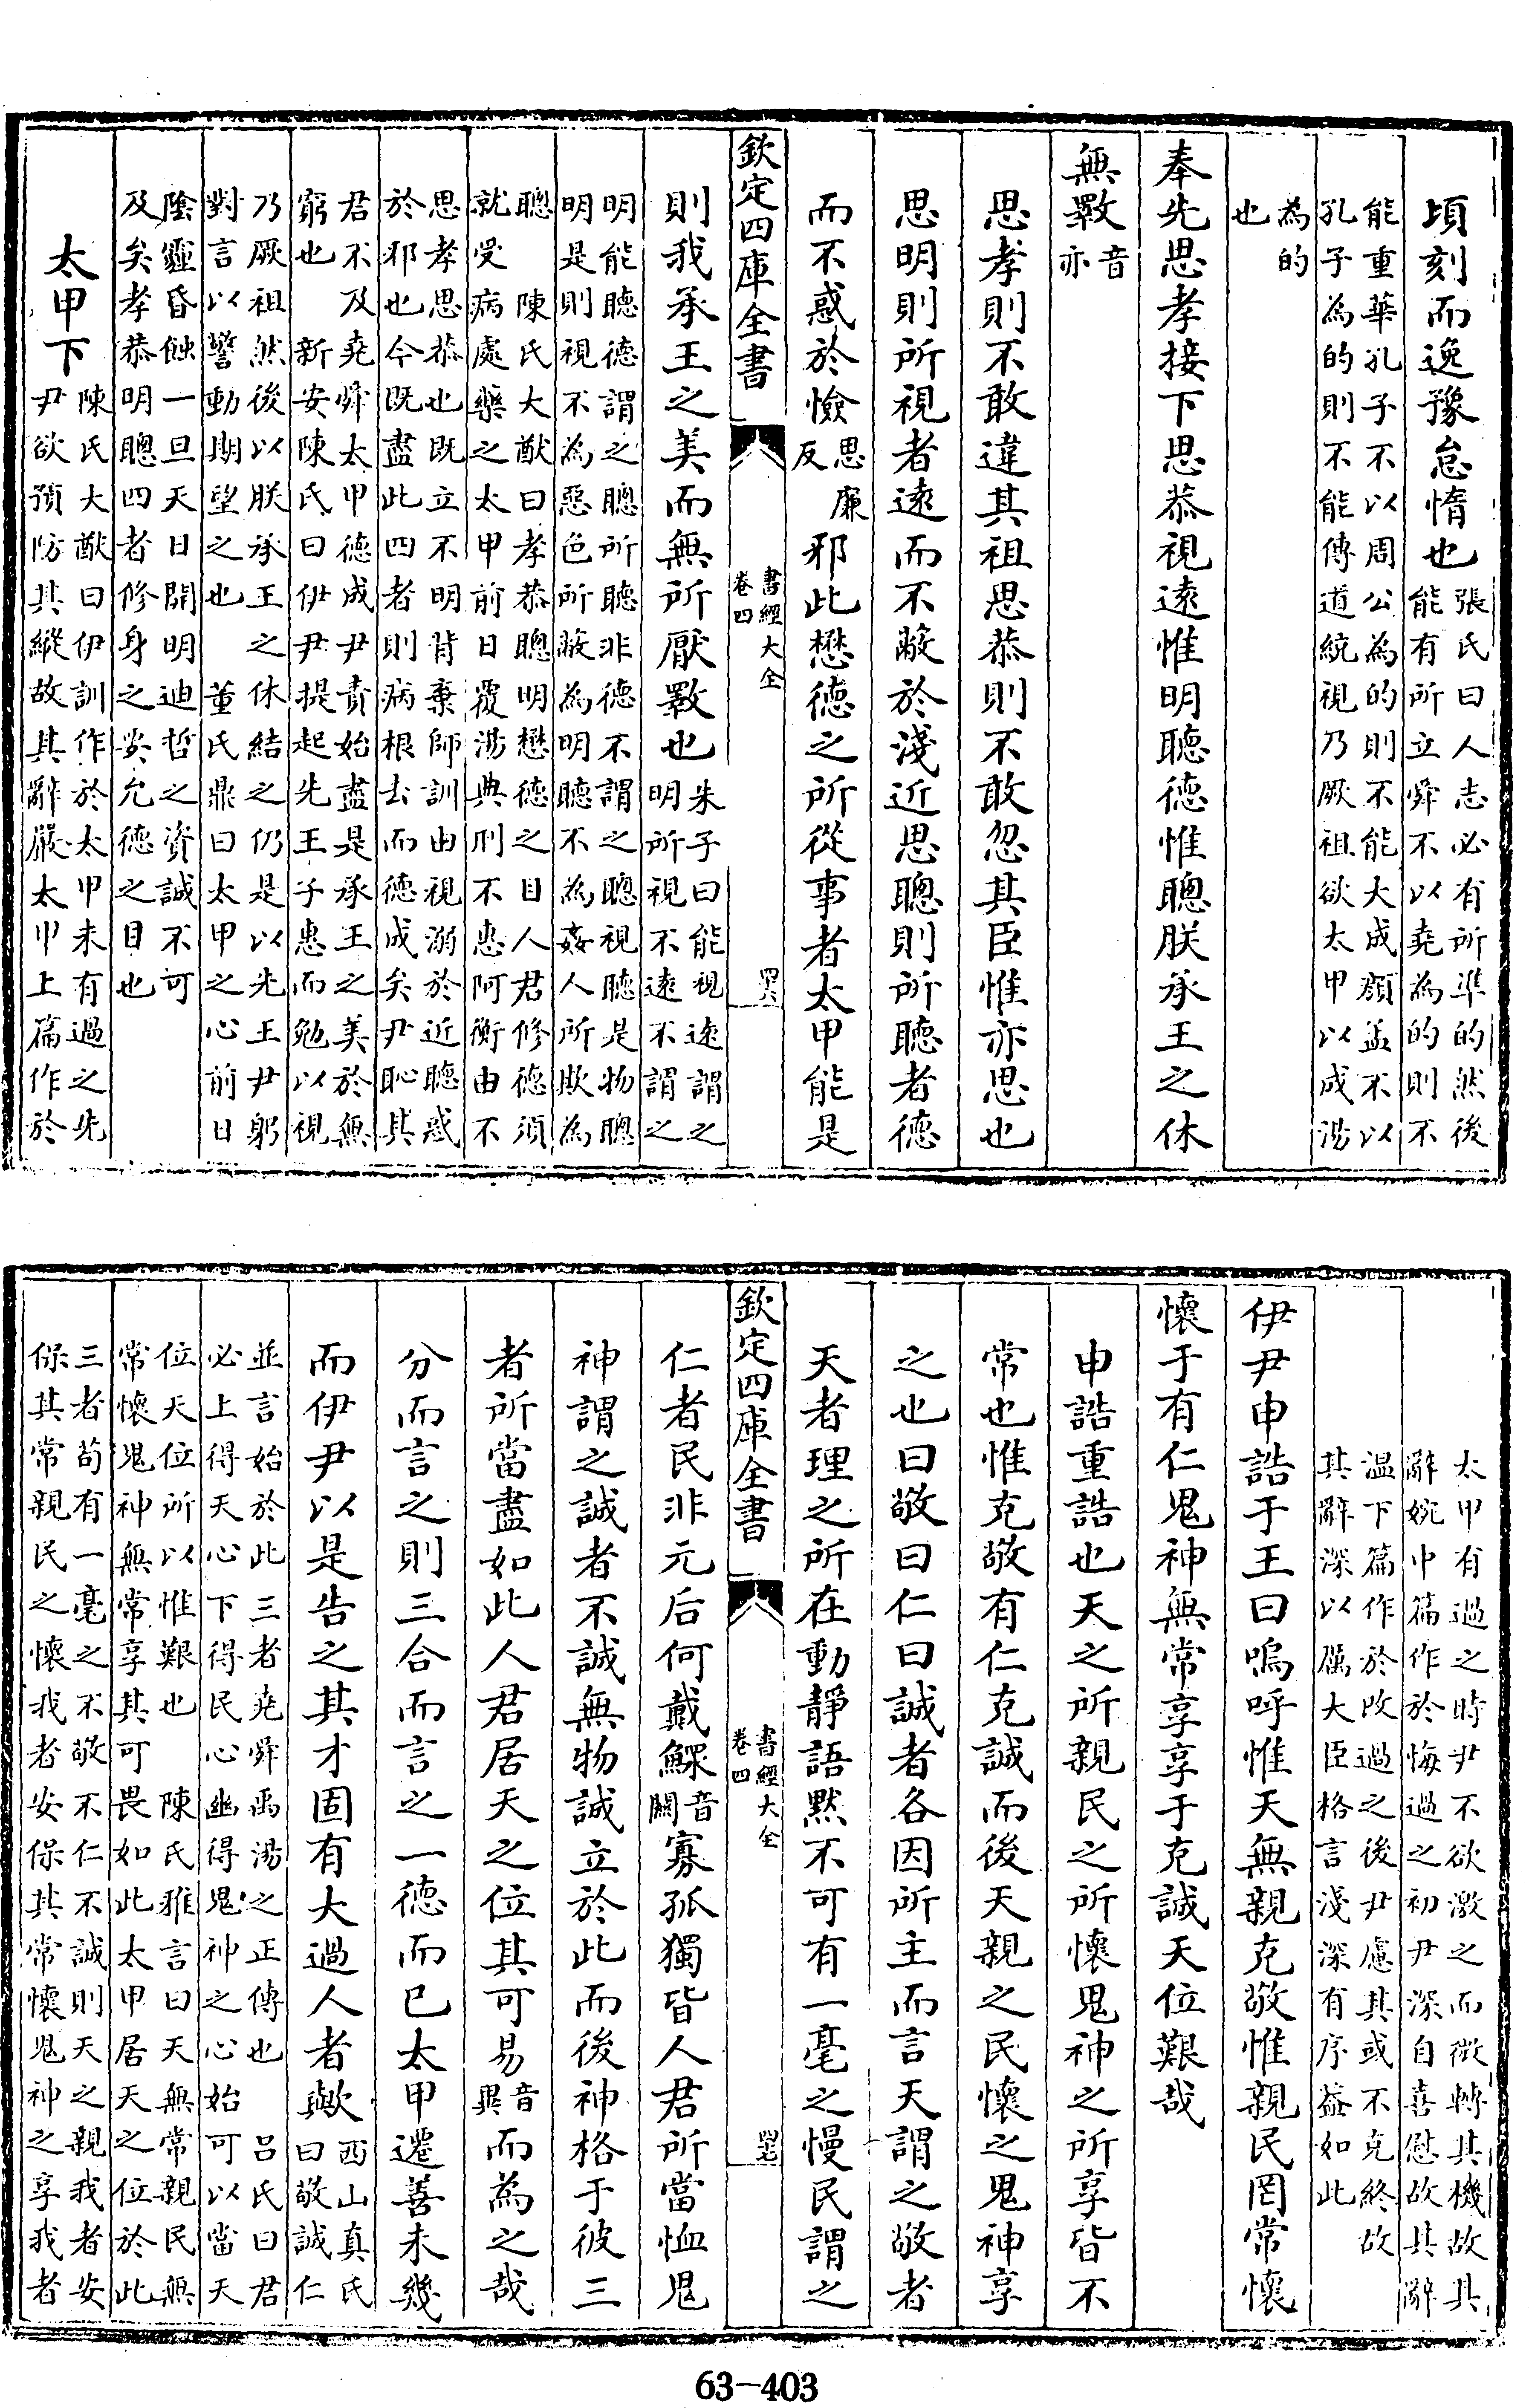 頃刻而逸豫怠惰也張氏曰人志必有所準的然後
能有所立舜不以堯為的則不
能重華孔子不以周公為的則不能大成顔孟不以
孔子為的則不能傳道統視乃厥祖欲太甲以成湯
為的
也
奉先思孝接下思恭視逺惟明聽德惟聰朕承王之休
無斁音
亦
思孝則不敢違其祖思恭則不敢忽其臣惟亦思也
思明則所視者逺而不蔽於淺近思聰則所聽者德
而不惑於憸思廉
反邪此懋德之所從事者太甲能是
欽定四庫全書
書經大全
卷四
四六
則我承王之美而無所厭斁也朱子曰能視逺謂之
明所視不逺不謂之
明能聽德謂之聰所聽非德不謂之聰視聽是物聰
明是則視不為惡色所蔽為明聽不為姦人所欺為
聰 陳氏大猷曰孝恭聰明懋德之目人君修德須
就受病處藥之太甲前日覆湯典刑不惠阿衡由不
思孝思恭也既立不明背棄師訓由視溺於近聽惑
於邪也今既盡此四者則病根去而德成矣尹恥其
君不及堯舜太甲德成尹責始盡是承王之美於無
窮也 新安陳氏曰伊尹提起先王子惠而勉以視
乃厥祖然後以朕承王之休結之仍是以先王尹躬
對言以警動期望之也 董氏鼎曰太甲之心前日
陰霾昏蝕一旦天日開明迪哲之資誠不可
及矣孝恭明聰四者修身之要允德之目也
太甲下陳氏大猷曰伊訓作於太甲未有過之先
尹欲預防其縱故其辭嚴太甲上篇作於
太甲有過之時尹不欲激之而微轉其機故其
辭婉中篇作於悔過之初尹深自喜慰故其辭
溫下篇作於改過之後尹慮其或不克終故
其辭深以厲大臣格言淺深有序蓋如此
伊尹申誥于王曰嗚呼惟天無親克敬惟親民罔常懷
懷于有仁鬼神無常享享于克誠天位艱哉
申誥重誥也天之所親民之所懷鬼神之所享皆不
常也惟克敬有仁克誠而後天親之民懷之鬼神享
之也曰敬曰仁曰誠者各因所主而言天謂之敬者
天者理之所在動靜語黙不可有一毫之慢民謂之
欽定四庫全書
書經大全
卷四
四七
仁者民非元后何戴鰥音
關寡孤獨皆人君所當恤鬼
神謂之誠者不誠無物誠立於此而後神格于彼三
者所當盡如此人君居天之位其可易音
異而為之哉
分而言之則三合而言之一德而已太甲遷善未幾
而伊尹以是告之其才固有大過人者歟西山真氏
曰敬誠仁
並言始於此三者堯舜禹湯之正傳也 呂氏曰君
必上得天心下得民心幽得鬼神之心始可以當天
位天位所以惟艱也 陳氏雅言曰天無常親民無
常懷鬼神無常享其可畏如此太甲居天之位於此
三者苟有一毫之不敬不仁不誠則天之親我者安
保其常親民之懷我者安保其常懷鬼神之享我者
63—403